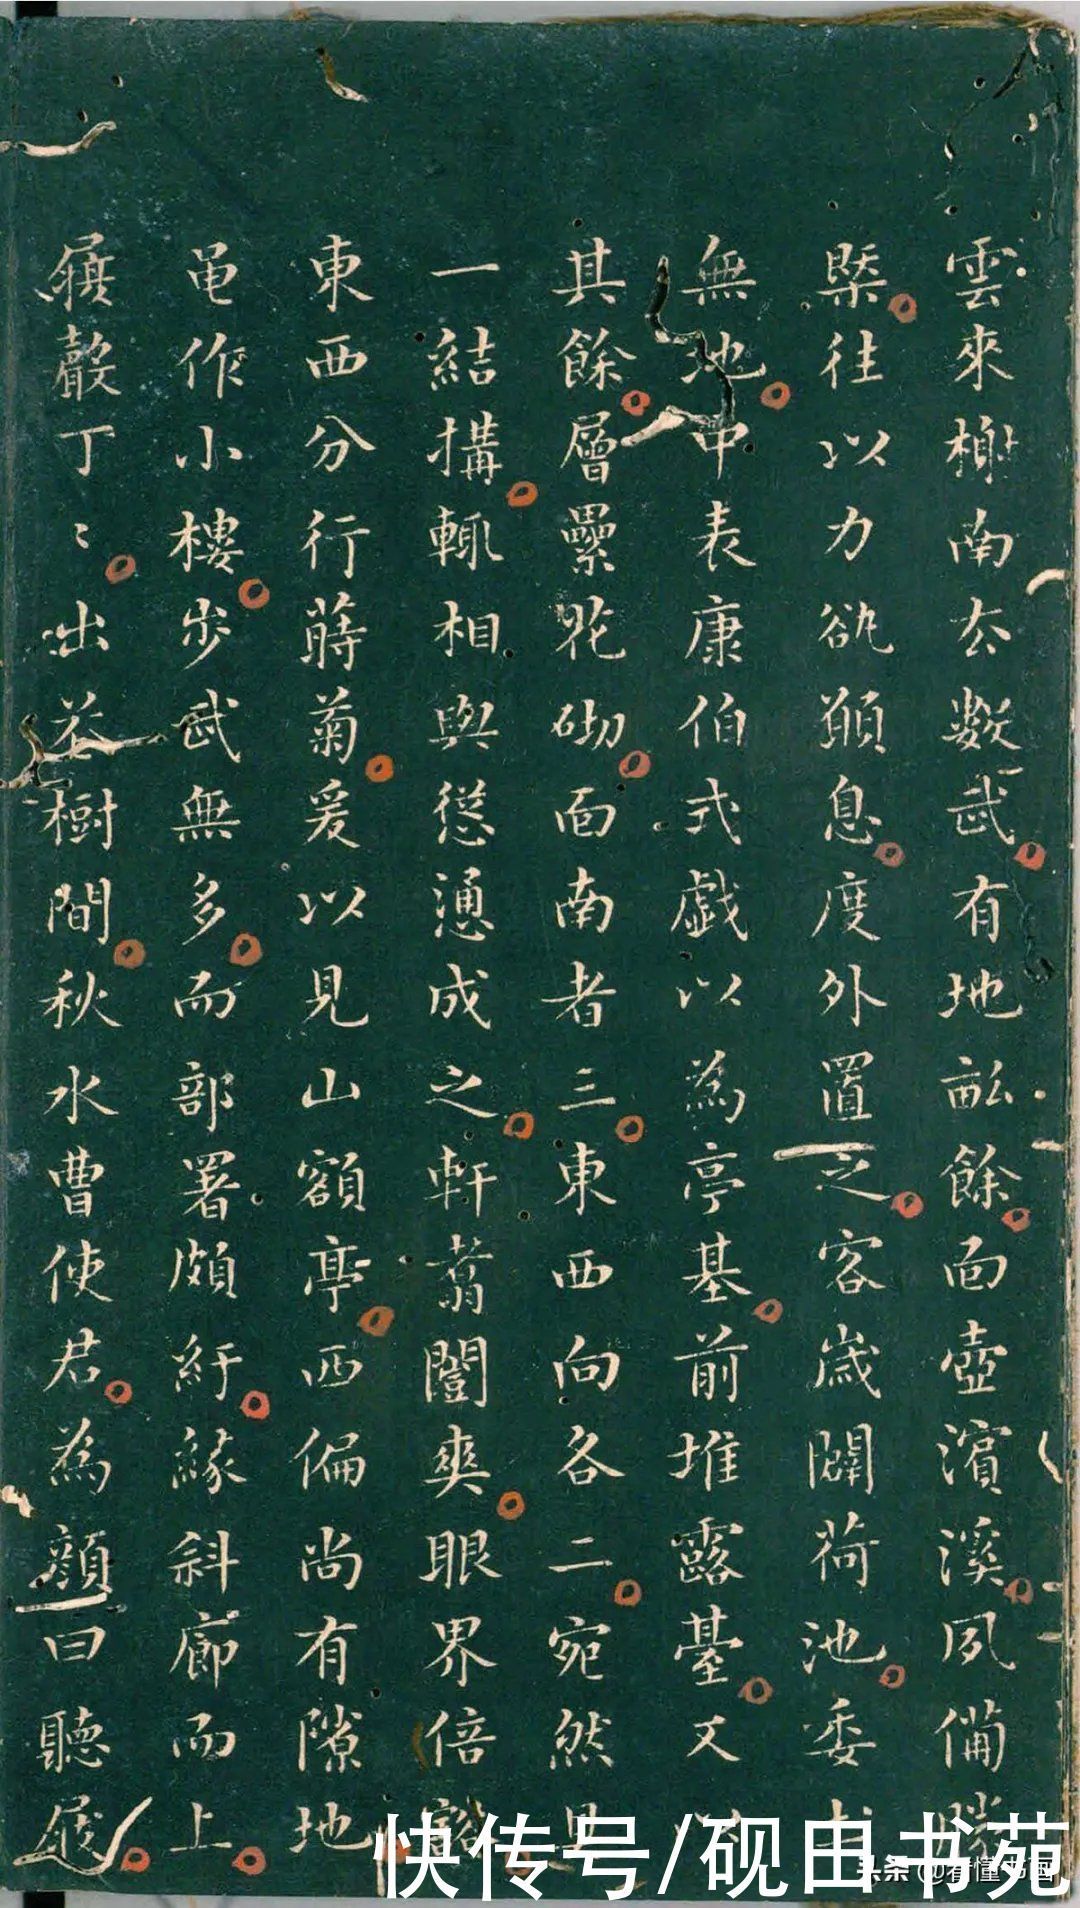 雲來榭南去數武有地畝餘面壺濱溪夙備勝
槩往以力欲頤息度外置之客歲闢荷池委
無池中表康伯式戲以為亭基前堆露臺又
其餘層壘花砌面南者三東西向各二宛然
一結搆輒相與慫恿成之軒翥闓爽眼界倍
東西分行蒔菊爰以見山額亭西偏尚有隙地
黾作小樓步武無多而部署頗紆緣斜廊而上
屐聲丁〻出花樹間秋水曹使君為顏曰聽屐
快传号/砚田书苑
头条@看懂书画